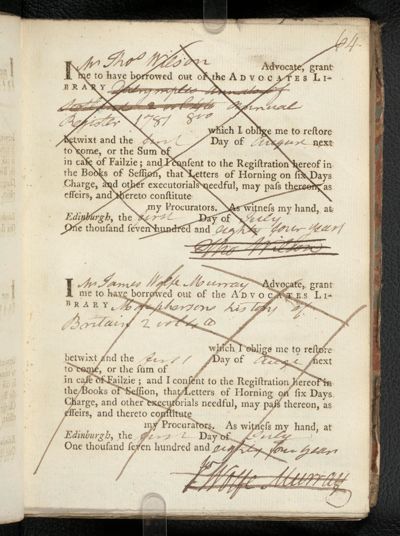 64.
I Mr Thos Wilson Advocate, grant
me to have borrowed out of the ADVOCATES LI-
BRARY Dalrymples Annals of
Scotland 2 vols Annual
Register 1781 8vo
which I oblige me to restore
betwixt and the first Day of August next
to come, or the Sum of
in case of Failzie; and I consent to the Registration hereof in
the Books of Session, that Letters of Horning on six Days
Charge, and other executorials needful, may pass thereon, as
effeirs, and thereto constitute
my Procurators. As witness my hand, at
Edinburgh, the first Day of July
One thousand seven hundred and eighty four years
Thos Wilson
I Mr James Wolfe Murray Advocate, grant
me to have borrowed out of the ADVOCATES LI-
BRARY Macphersons history of
Britain 2 vols
which I oblige me to restore
betwixt and the first Day of Augt next
to come, or the sum of
in case of Failzie; and I consent to the Registration hereof in
the Books of Session, that Letters of Horning on six Days
Charge, and other executorials needful, may pass thereon, as
effeirs, and thereto constitute
my Procurators. As witness my hand, at
Edinburgh, the first Day of July
One thousand seven hundred and eighty four years
Wolfe Murray